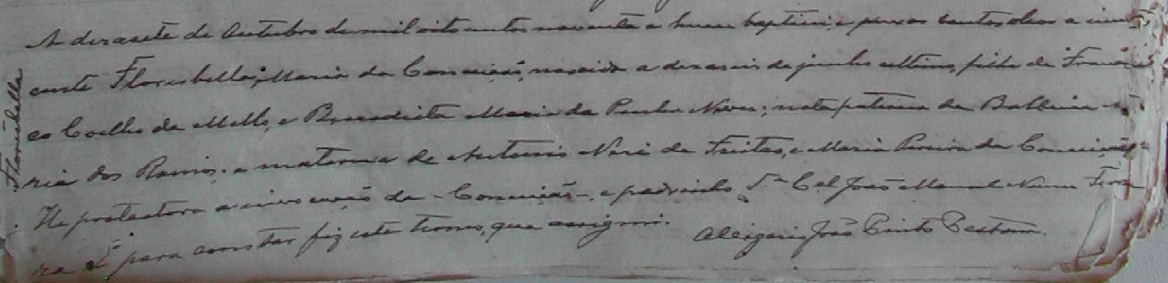 Florisbella
A dezasete de Outubro de mil oito centos noventa e hum baptisei, e puz os santos oleos a inno
cente Florisbella Maria da Conceição, nascida a dezaseis de junho ultimo, filha de Francis
co Coelho de Mello, e Benedicta Maria da Penha Neves; neta paterna de Balbina Ma
ria dos Ramos; e materna de Antonio Nere de Freitas, e Maria Pereira da Conceição.
He protectora a invocação da - Conceição -, e padrinho Cel João Manoel Nunes Ferrei
ra. E para constar fiz este termo, que assignei. O Vigario João Pinto Pestana.